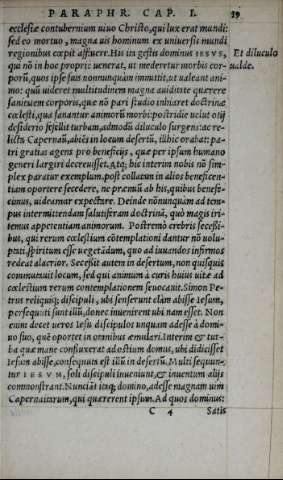 PARAPHR. CAP. I. 39
ecclesiæ contubernium uiuo Christo, qui lux erat mundi:
sed eo mortuo, magna uis hominum ex uniuersis mundi
regionibus cœpit affluere. His ita gestis dominus IESVS,
Et diluculo
qui nō in hoc proprie uenerat, ut mederetur morbis cor-
ualde.
porū, quos ipse suis nonnunquam immittit, ut ualeant ani-
mo: quū uideret multitudinem magna auiditate quærere
sanitatem corporis, quæ nō pari studio inhiaret doctrinæ
cœlesti, qua sanantur animorū morbi: postridie uelut otij
desiderio sefellit turbam, admodū diluculo surgens: ac re-
lictis Capernaū, abijt in locum desertū, illic orabat: pa-
tri gratias agens pro beneficijs, quæ per ipsum humano
generi largiri decreuisset. Atq; his interim nobis nō sim-
plex paratur exemplum. post collatum in alios beneficen-
tiam oportere secedere, ne præmiū ab his, quibus benefe-
cimus, uideamur expectare. Deinde nōnunquām ad tem-
pus intermittendam salutiferam doctrinā, quò magis iri-
temus appetentiam animorum. Postremò crebris secessi-
bus, qui rerum cœlestium cōtemplationi dantur nō uolu-
ptati, spiritum esse uegetādum, quo ad iuuandos infirmos
redeat alacrior. Secessit autem in desertum, non quisquis
commutauit locum, sed qui animum à curis huius uitæ ad
cœlestium rerum contemplationem seuocauit. Simon Pe-
trus reliquiq; discipuli, ubi senserunt clàm abisse Iesum,
persequuti sunt illū, donec inuenirent ubi nam esset. Non
enim decet ueros Iesu discipulos unquam abesse à domi-
no suo, quē oportet in omnibus æmulari. Interim & tur-
ba quæ mane confluxerat ad ostium domus, ubi didicisset
Iesum abisse, consequuta est illū in desertū. Multi sequun-
tur IESVM, soli discipuli inueniunt, & inuentum alijs
commonstrant. Nunciāt itaq; domino, adesse magnam uim
Capernaitarum, qui quærerent ipsum. Ad quos dominus:
C 4 Satis